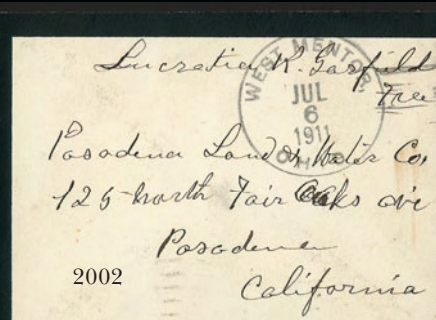 Lucretia R. Garfield
Free
WEST MENTOR
JUL
6
1911
OHIO
Pasadena Land & Water Co,
125 North Fair Oaks ave
Pasadena
California
2002